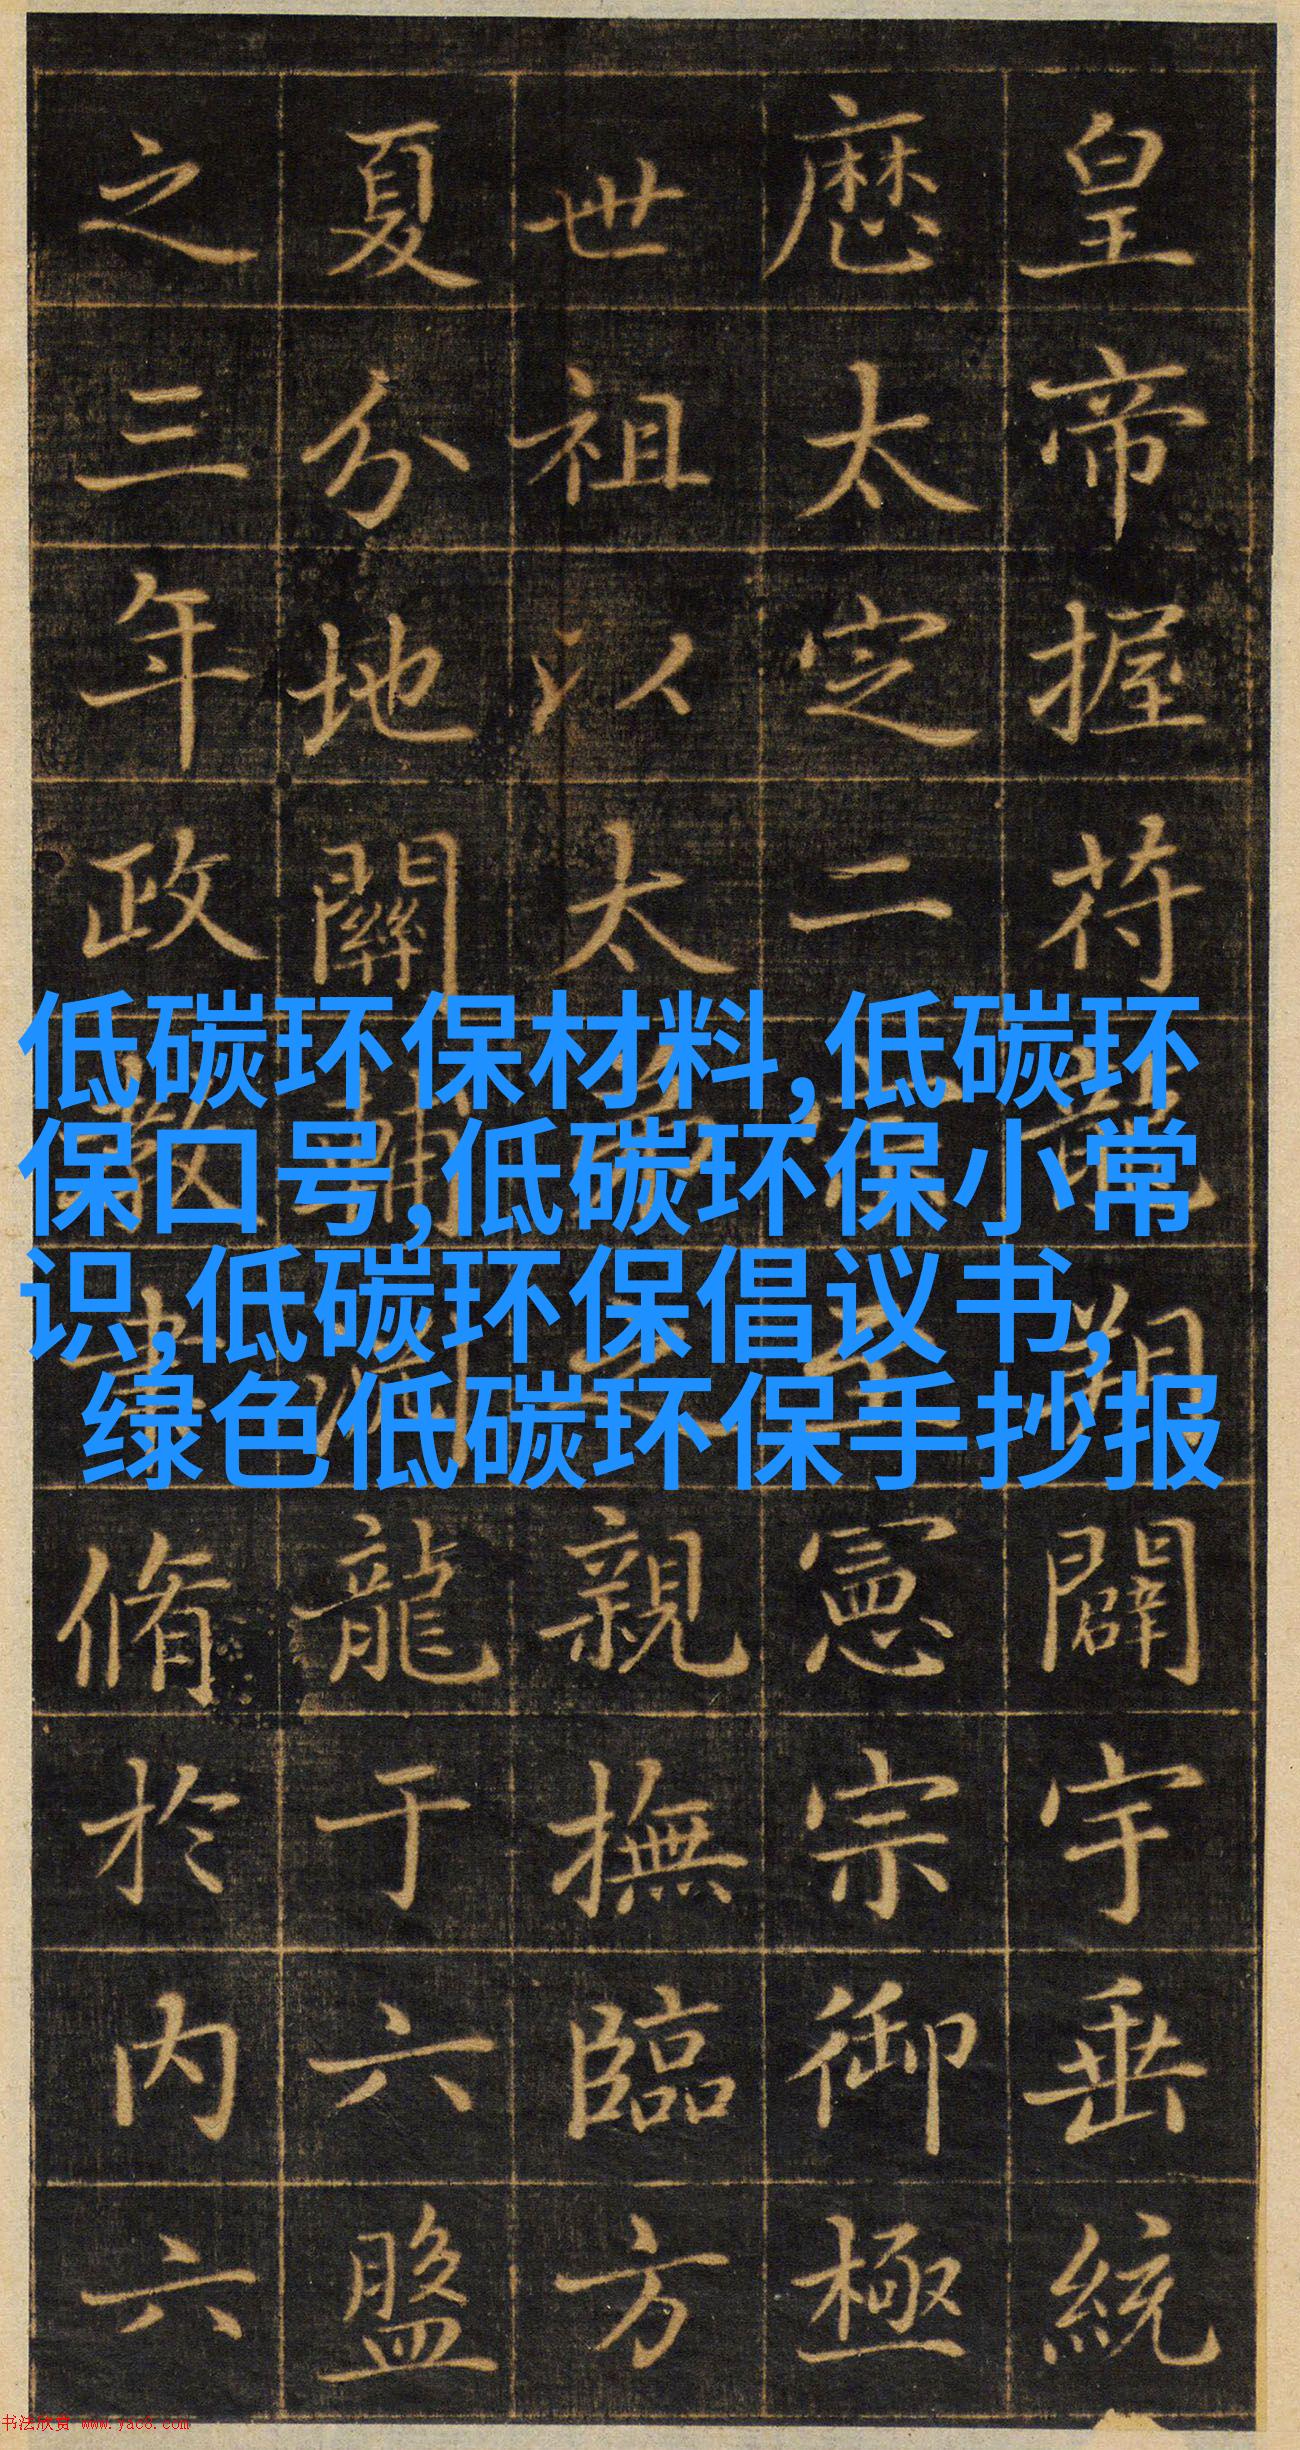 皇帝握苻闢宇垂統
厯太定二憲宗御極
世祖以太之親撫臨方
夏分地關輔龍于六盤
之三年政脩於內六
低碳环保材料,低碳环
保口号,低碳环保小常
识,低碳环保倡议书,
绿色低碳环保手抄报
书法欣赏 www.yac8.com